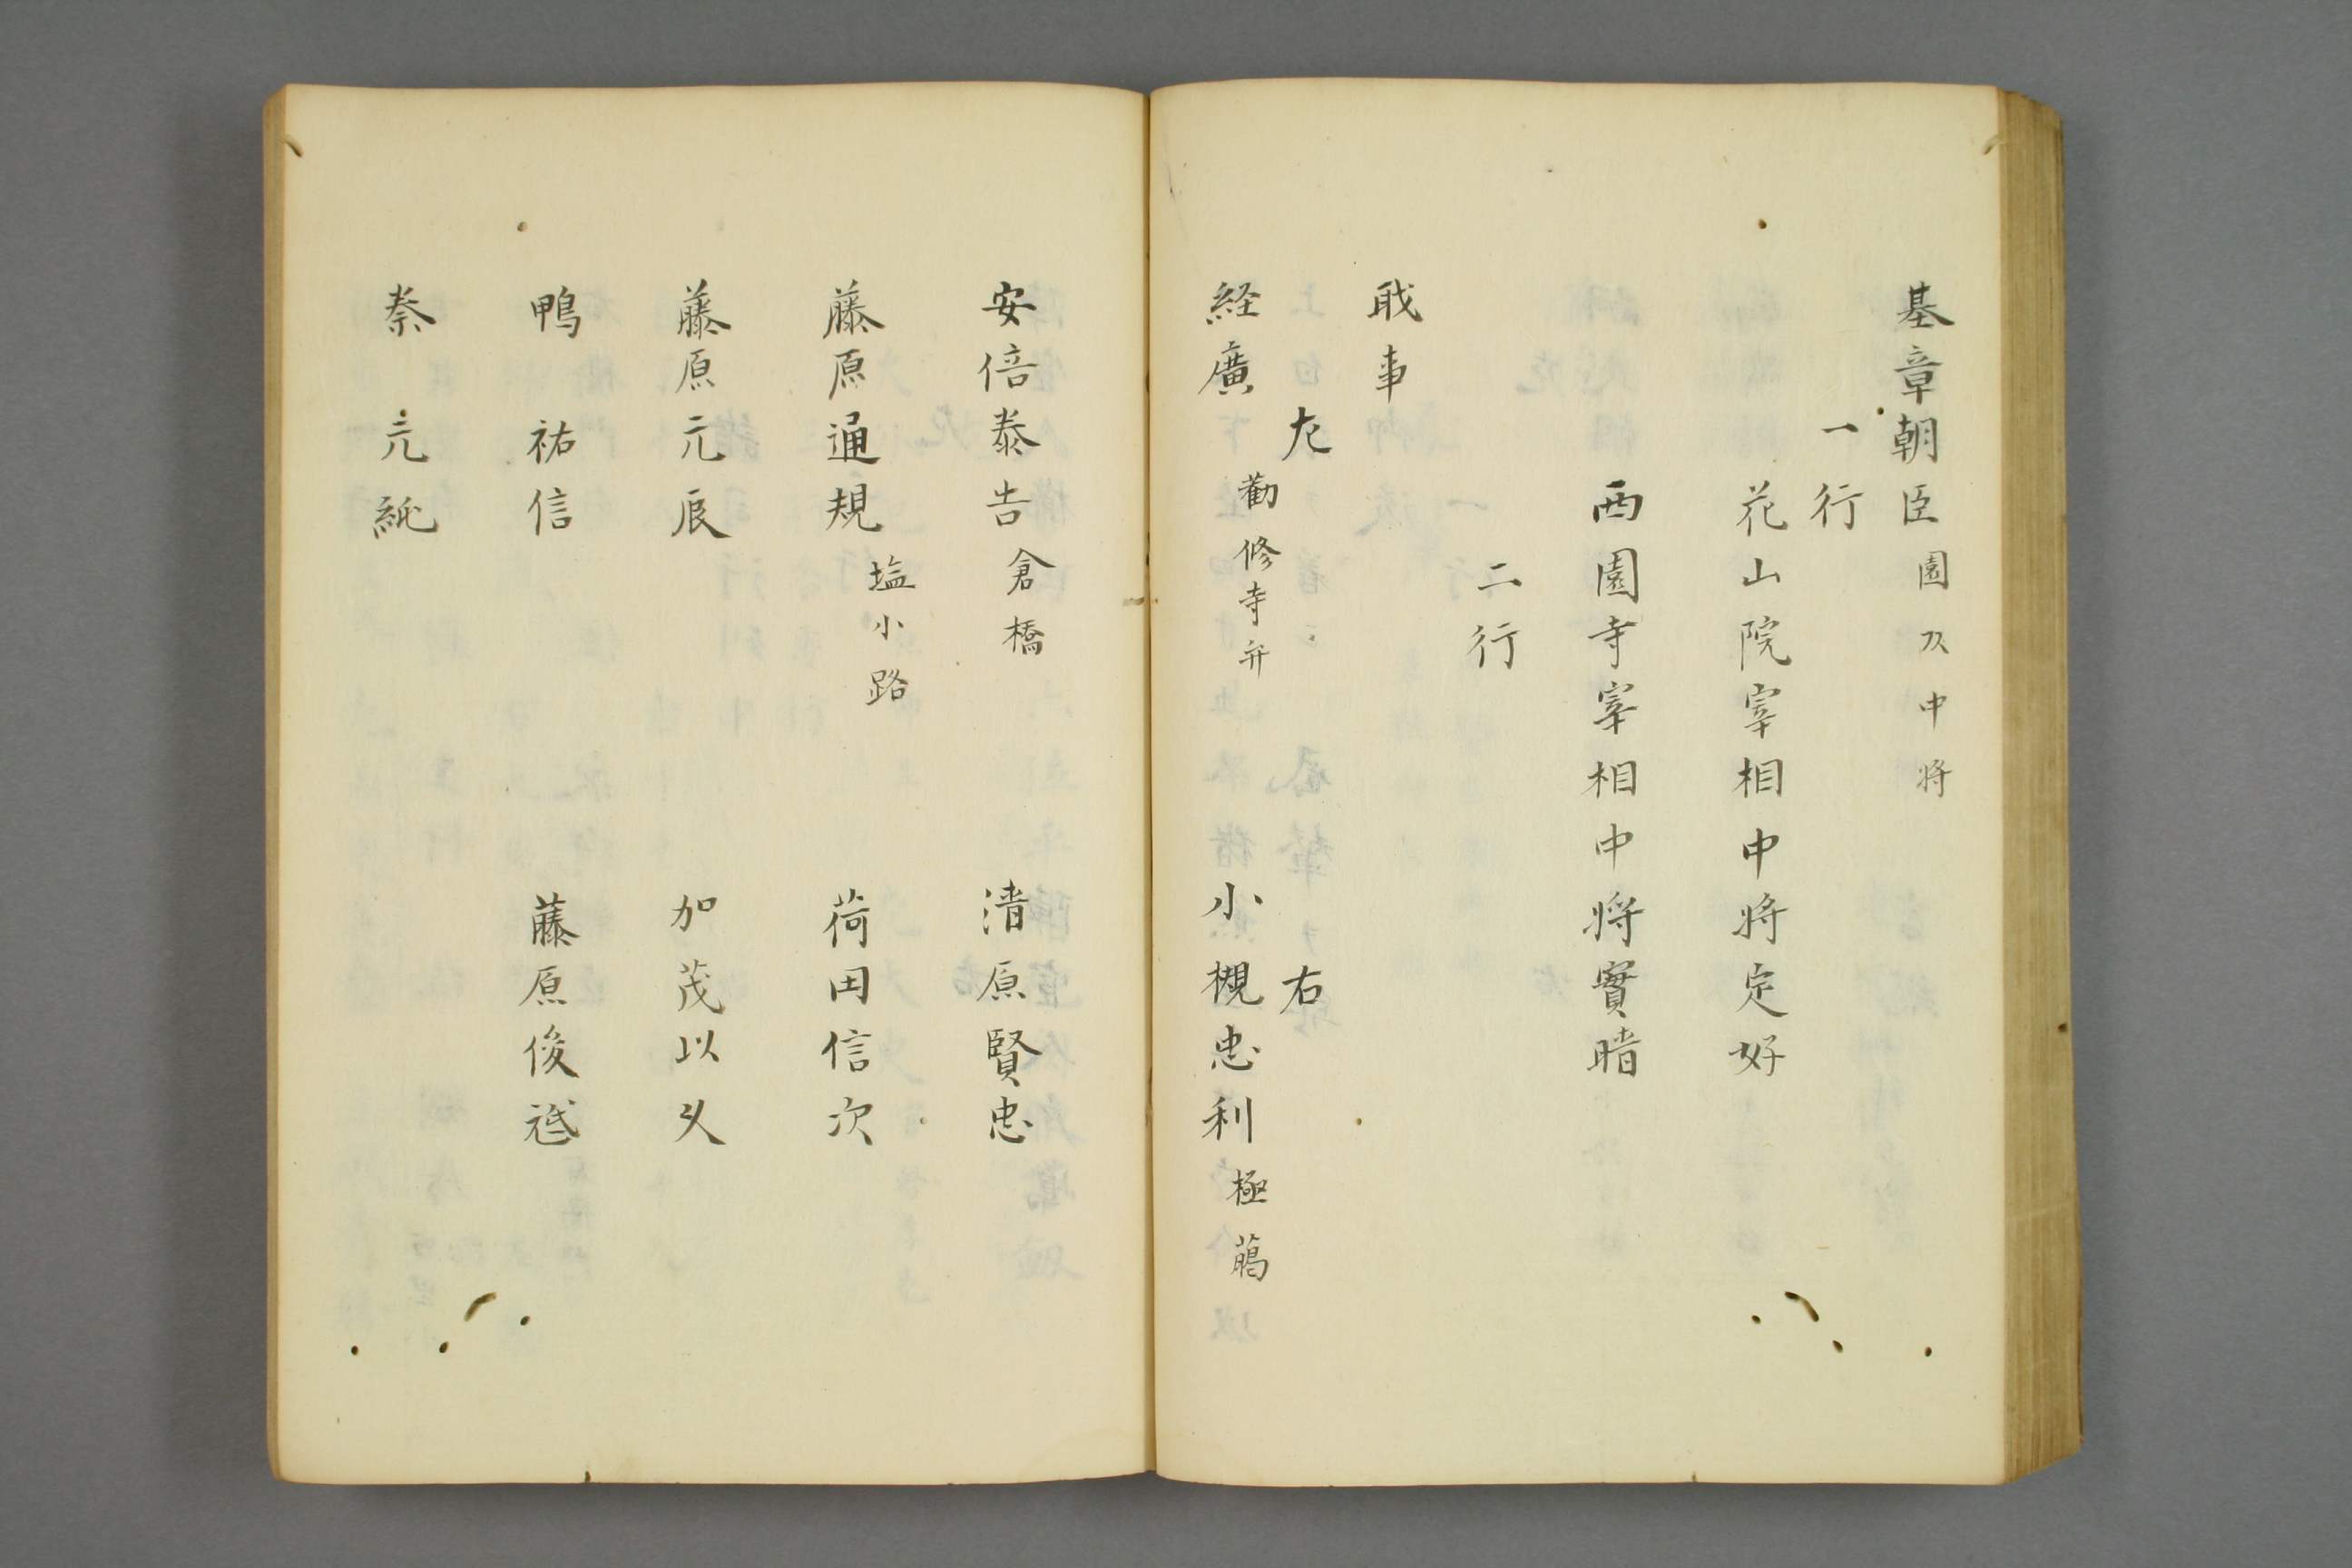 基章朝臣 園 中将
一行
花山院宰相中将定好
西園寺宰相中将實晴
二行
職事
左 右
経廣 勧修寺弁 小槻忠利 極﨟
安倍泰吉 倉橋 清原賢忠
藤原通規 塩小路 荷田信次
藤原元辰 加茂以久
鴨祐信 藤原俊
秦元純